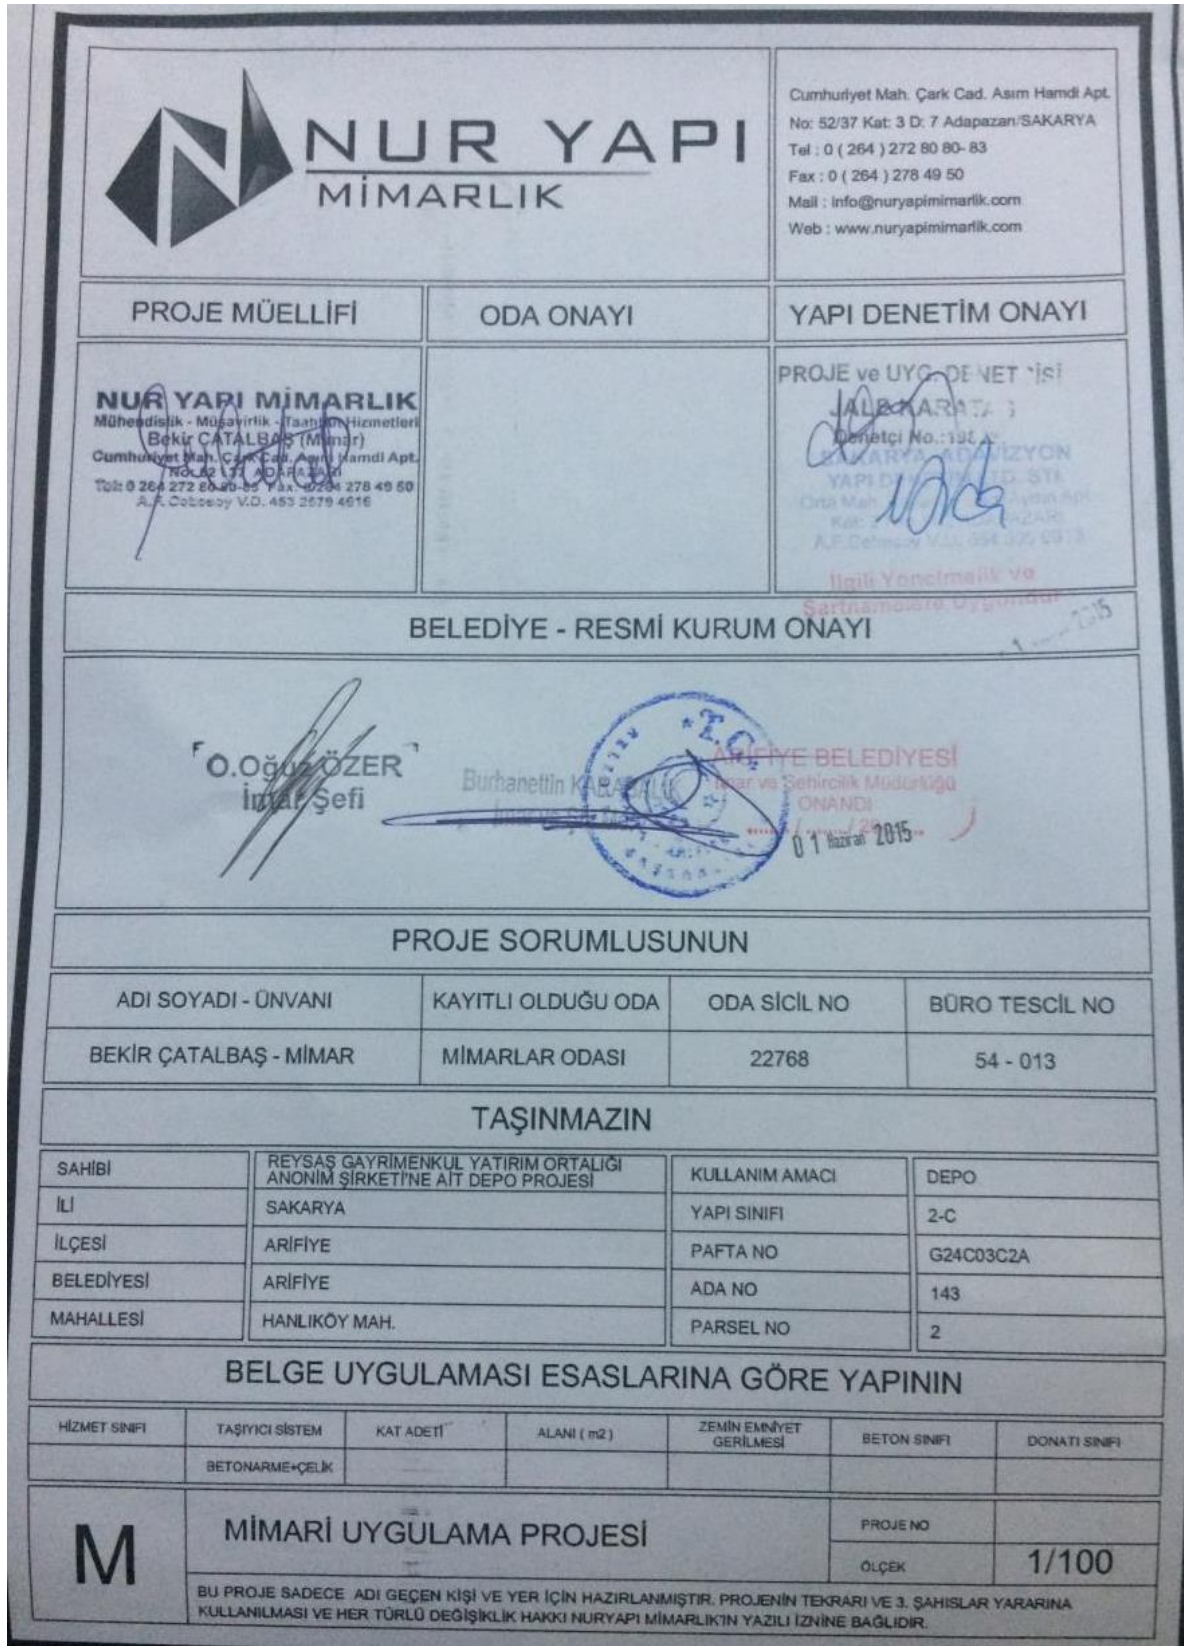 NUR YAPI
MİMARLIK
Cumhuriyet Mah. Çark Cad. Asım Hamdi Apt.
No: 52/37 Kat: 3 D: 7 Adapazarı/SAKARYA
Tel : 0 ( 264 ) 272 80 80- 83
Fax : 0 ( 264 ) 278 49 50
Mail : info@nuryapimimarlik.com
Web : www.nuryapimimarlik.com
PROJE MÜELLİFİ
ODA ONAYI
YAPI DENETİM ONAYI
NUR YAPI MİMARLIK
Mühendislik - Müşavirlik - Taahhüt Hizmetleri
Bekir ÇATALBAŞ (Mimar)
Cumhuriyet Mah. Çark Cad. Asım Hamdi Apt.
ADAPAZARI
Tel: 0 264 272 80 80-83 Fax: 0264 278 49 50
V.D. 453 2579 4616
PROJE ve UYG. DENETÇİSİ
JALE KARATAŞ
Denetçi No.:
SAKARYA ADAVİZYON
YAPI DENETİM LTD. ŞTİ.
Orta Mah.
İlgili Yönetmelik ve
Şartnamelere Uygundur
2015
BELEDİYE - RESMİ KURUM ONAYI
O.Oğuz ÖZER
İmar Şefi
Burhanettin
T.C.
ARİFİYE BELEDİYESİ
İmar ve Şehircilik Müdürlüğü
ONANDI
01 Haziran 2015
PROJE SORUMLUSUNUN
ADI SOYADI - ÜNVANI
KAYITLI OLDUĞU ODA
ODA SİCİL NO
BÜRO TESCİL NO
BEKİR ÇATALBAŞ - MİMAR
MİMARLAR ODASI
22768
54 - 013
TAŞINMAZIN
SAHİBİ
REYSAŞ GAYRİMENKUL YATIRIM ORTALIĞI
ANONİM ŞİRKETİ'NE AİT DEPO PROJESİ
KULLANIM AMACI
DEPO
İLİ
SAKARYA
YAPI SINIFI
2-C
İLÇESİ
ARİFİYE
PAFTA NO
G24C03C2A
BELEDİYESİ
ARİFİYE
ADA NO
143
MAHALLESİ
HANLIKÖY MAH.
PARSEL NO
2
BELGE UYGULAMASI ESASLARINA GÖRE YAPININ
HİZMET SINIFI
TAŞIYICI SİSTEM
KAT ADETİ
ALANI ( m2 )
ZEMİN EMNİYET
GERİLMESİ
BETON SINIFI
DONATI SINIFI
BETONARME+ÇELİK
M
MİMARİ UYGULAMA PROJESİ
PROJE NO
ÖLÇEK
1/100
BU PROJE SADECE ADI GEÇEN KİŞİ VE YER İÇİN HAZIRLANMIŞTIR. PROJENİN TEKRARI VE 3. ŞAHISLAR YARARINA
KULLANILMASI VE HER TÜRLÜ DEĞİŞİKLİK HAKKI NURYAPI MİMARLIK'IN YAZILI İZNİNE BAĞLIDIR.